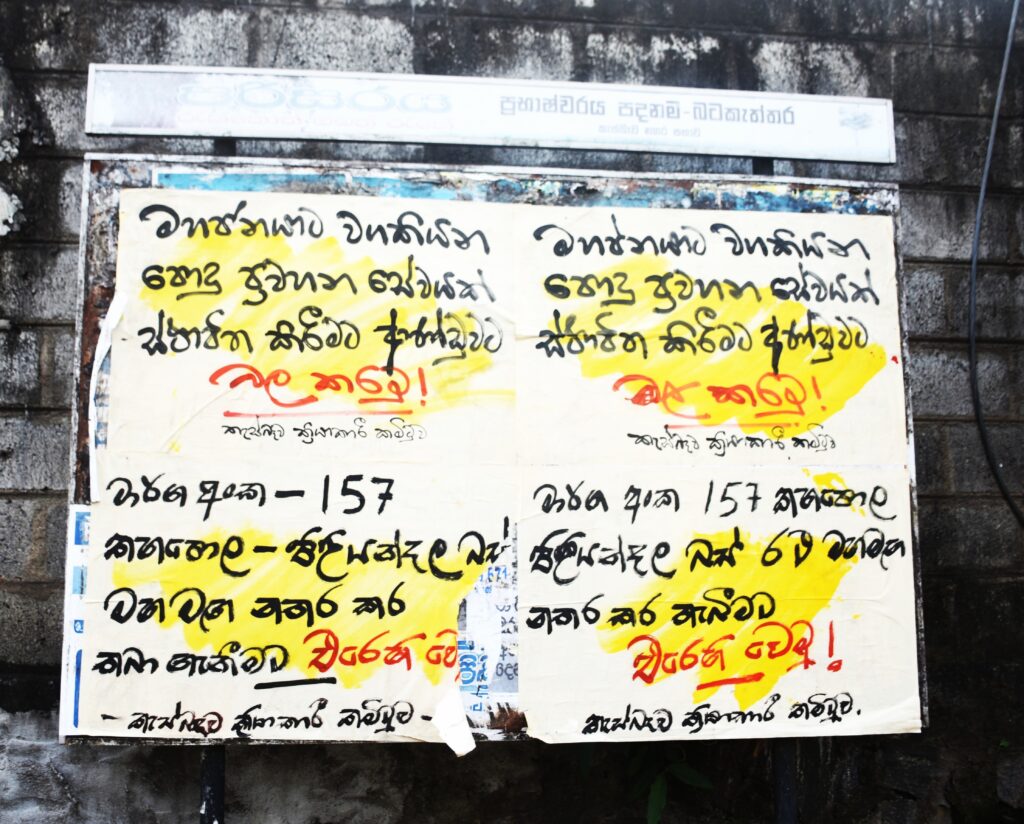 පරිසරය
ප්‍රභාෂ්වරය පදනම - බටකැත්තර
කැස්බෑව නගර සභාව
මහජනයාට වගකියන
පොදු ප්‍රවාහන සේවයක්
ස්ථාපිත කිරීමට ආණ්ඩුවට
බල කරමු!
කැස්බෑව ක්‍රියාකාරී කමිටුව
මහජනයාට වගකියන
පොදු ප්‍රවාහන සේවයක්
ස්ථාපිත කිරීමට ආණ්ඩුවට
බල කරමු!
කැස්බෑව ක්‍රියාකාරී කමිටුව
මාර්ග අංක - 157
කහපොල - පිළියන්දල බස්
මහ මඟ නතර කර
තබා ගැනීමට එරෙහි වෙ
- කැස්බෑව ක්‍රියාකාරී කමිටුව -
මාර්ග අංක 157 කහපොල
පිළියන්දල බස් රථ මගමඟ
නතර කර තැබීමට
එරෙහි වෙමු!
කැස්බෑව ක්‍රියාකාරී කමිටුව.